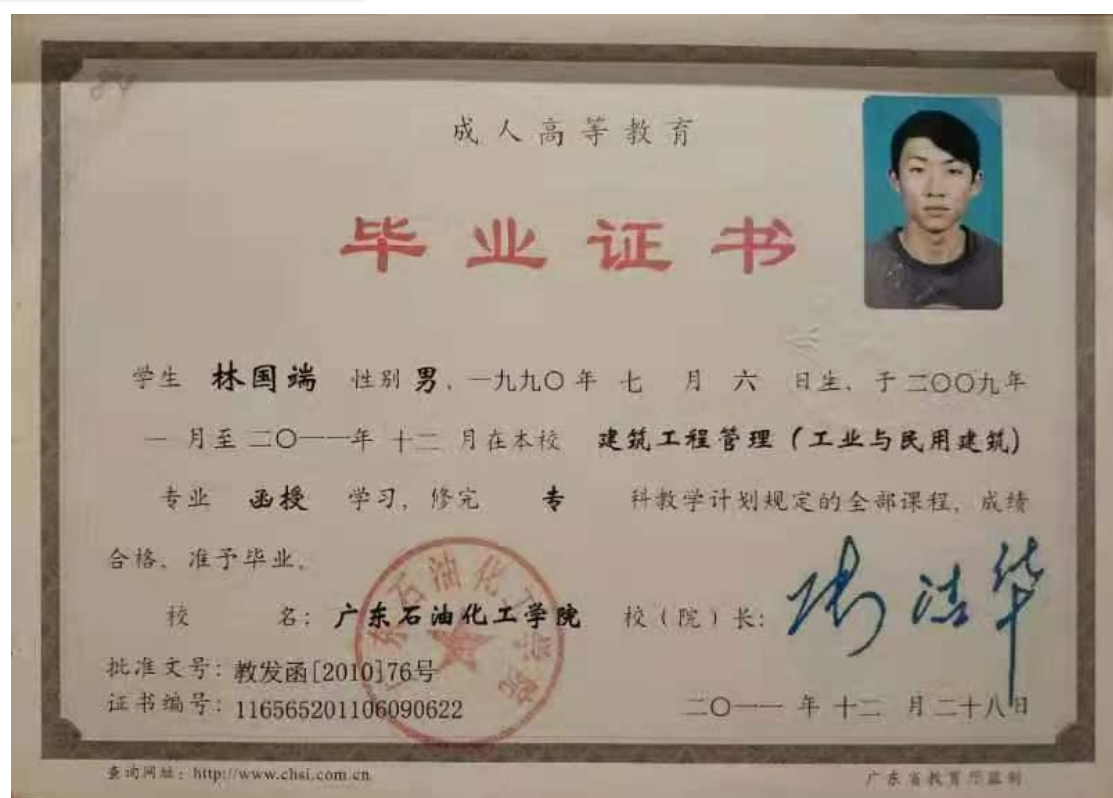 成人高等教育
毕业证书
学生 林国端 性别 男，一九九〇年 七 月 六 日生，于二〇〇九年
一 月至二〇一一年 十二 月在本校 建筑工程管理（工业与民用建筑）
专业 函授 学习，修完 专 科教学计划规定的全部课程，成绩
合格，准予毕业。
校 名：广东石油化工学院 校（院）长：
批准文号：教发函[2010]76号
证书编号：116565201106090622
二〇一一 年 十二 月二十八日
广东石油化工学院
查询网址：http://www.chsi.com.cn
广东省教育厅监制